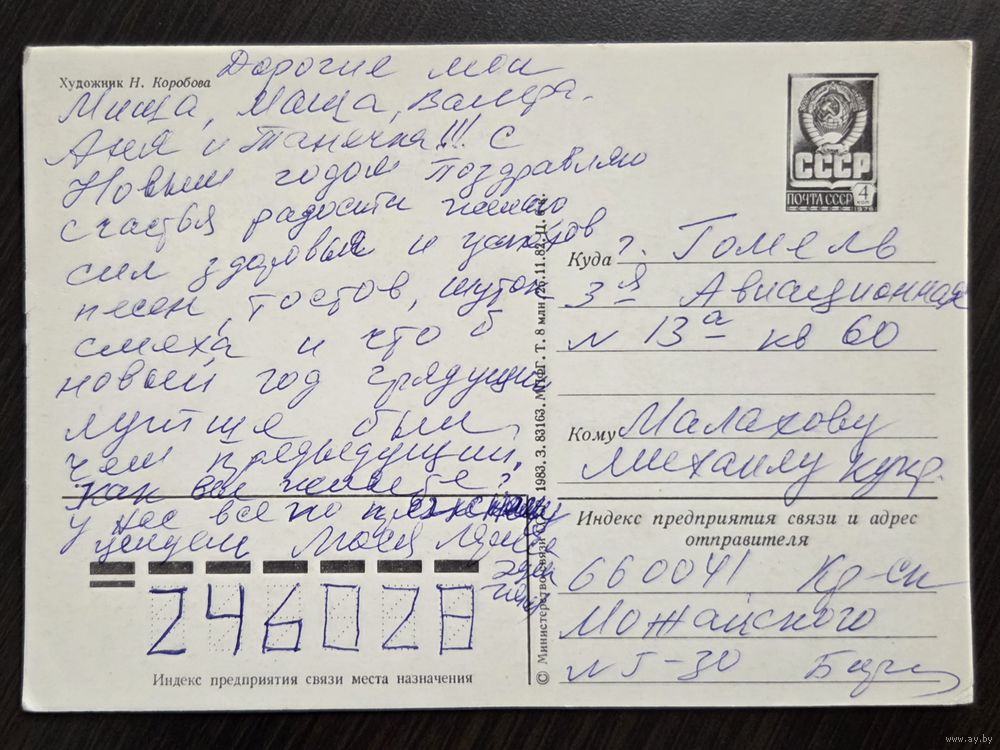 Художник Н. Коробова
Дорогие мои
Миша, Маша, Валера.
Аня и Танечка!!! С
Новым годом поздравляю
счастья радости
сил здоровья и успехов
песен, тостов, шуток
смеха и что б
новый год грядущий
лутше был
чем предыдущий.
Как вы живёте?
у нас все по
целуем
СССР
ПОЧТА СССР
4
коп
1978
Куда г. Гомель
3я Авиационная
N 13а кв 60
Кому Малахову
Михаилу
Индекс предприятия связи и адрес
отправителя
660041 Кр-ск
Можайского
N 5-30
246028
Индекс предприятия связи места назначения
© Министерство связи 1983. З. 83163. МПФГ. Т. 8 млн. 26.11.82. Ц. 4 к.
www.ay.by